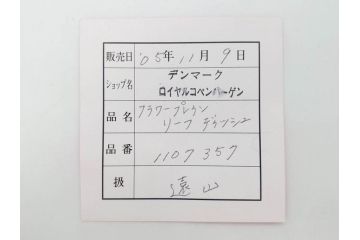 販売日 '05年11月9日
ショップ名 デンマーク
ロイヤルコペンハーゲン
品名 フラワープレイン
リーフ ディッシュ
品番 1107357
扱 遠山